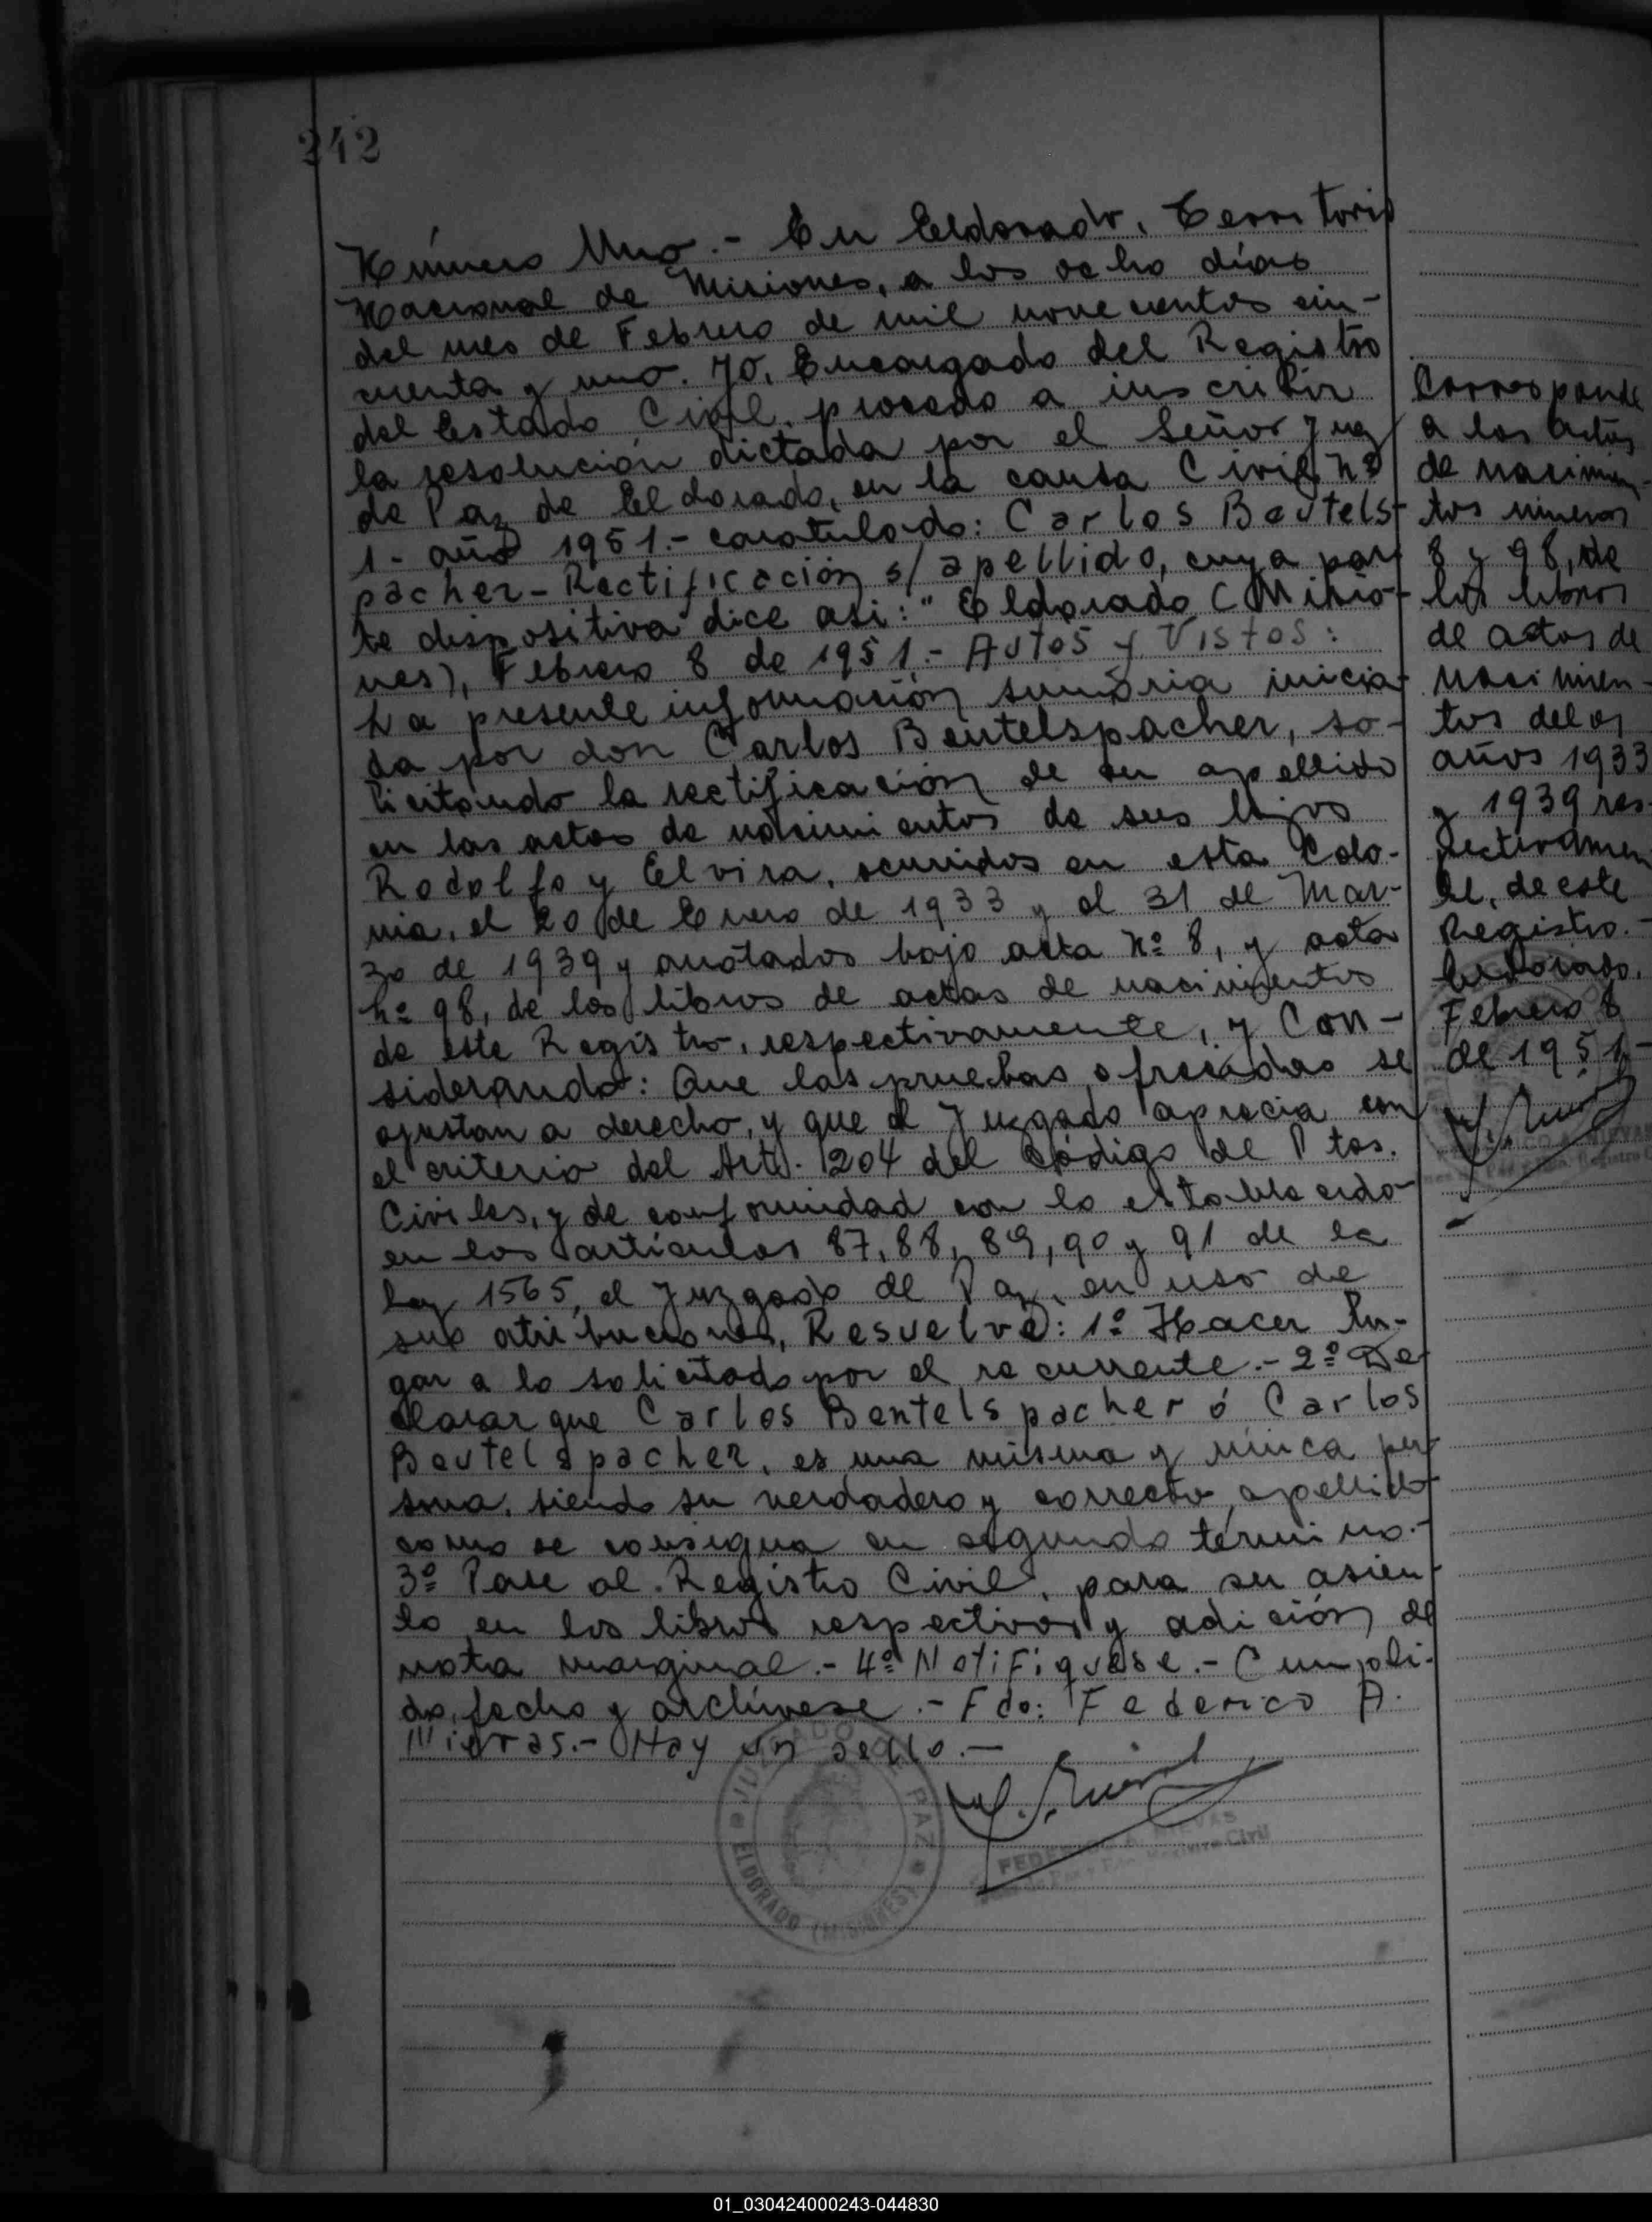 242
Número Uno.- En Eldorado, Territorio
Nacional de Misiones, a los ocho días
del mes de Febrero de mil novecientos cin-
cuenta y uno. Yo, Encargado del Registro
del Estado Civil, procedo a inscribir
la resolución dictada por el Señor Juez
de Paz de Eldorado, en la causa Civil Nº
1- año 1951.- caratulado: Carlos Beutels-
pacher - Rectificación s/ apellido, cuya par-
te dispositiva dice asi: "Eldorado (Misio-
nes), Febrero 8 de 1951.- Autos y Vistos:
La presente información sumaria inicia-
da por don Carlos Beutelspacher, so-
licitando la rectificación de su apellido
en las actas de nacimientos de sus hijos
Rodolfo y Elvira, ocurridos en esta Colo-
nia, el 20 de Enero de 1933 y el 31 de Mar-
zo de 1939 y anotados bajo acta Nº 8, y acta
Nº 98, de los libros de actas de nacimientos
de este Registro, respectivamente, y Con-
siderando: Que las pruebas ofrecidas se
ajustan a derecho, y que el Juzgado aprecia con
el criterio del Art. 204 del Código de Ptos.
Civiles, y de conformidad con lo establecido
en los artículos 87, 88, 89, 90 y 91 de la
Ley 1565, el Juzgado de Paz, en uso de
sus atribuciones, Resuelve: 1º Hacer lu-
gar a lo solicitado por el recurrente.- 2º De-
clarar que Carlos Bentelspacher ó Carlos
Beutelspacher, es una misma y única per-
sona, siendo su verdadero y correcto apellido
como se consigna en segundo término.-
3º Pase al Registro Civil, para su asien-
to en los libros respectivos y adición de
nota marginal.- 4º Notifiquese.- Cumpli-
do, fecho y archívese.- Fdo: Federico A.
Nievas.- Hay un sello.-
JUZGADO DE PAZ
ELDORADO (MISIONES)
FEDERICO A. NIEVAS
Corresponde
a las actas
de nacimien-
tos números
8 y 98, de
los libros
de actas de
nacimien-
tos de los
años 1933
y 1939 res-
pectivamen-
te, de este
Registro.-
Eldorado,
Febrero 8
de 1951-
FEDERICO A. NIEVAS
01_030424000243-044830